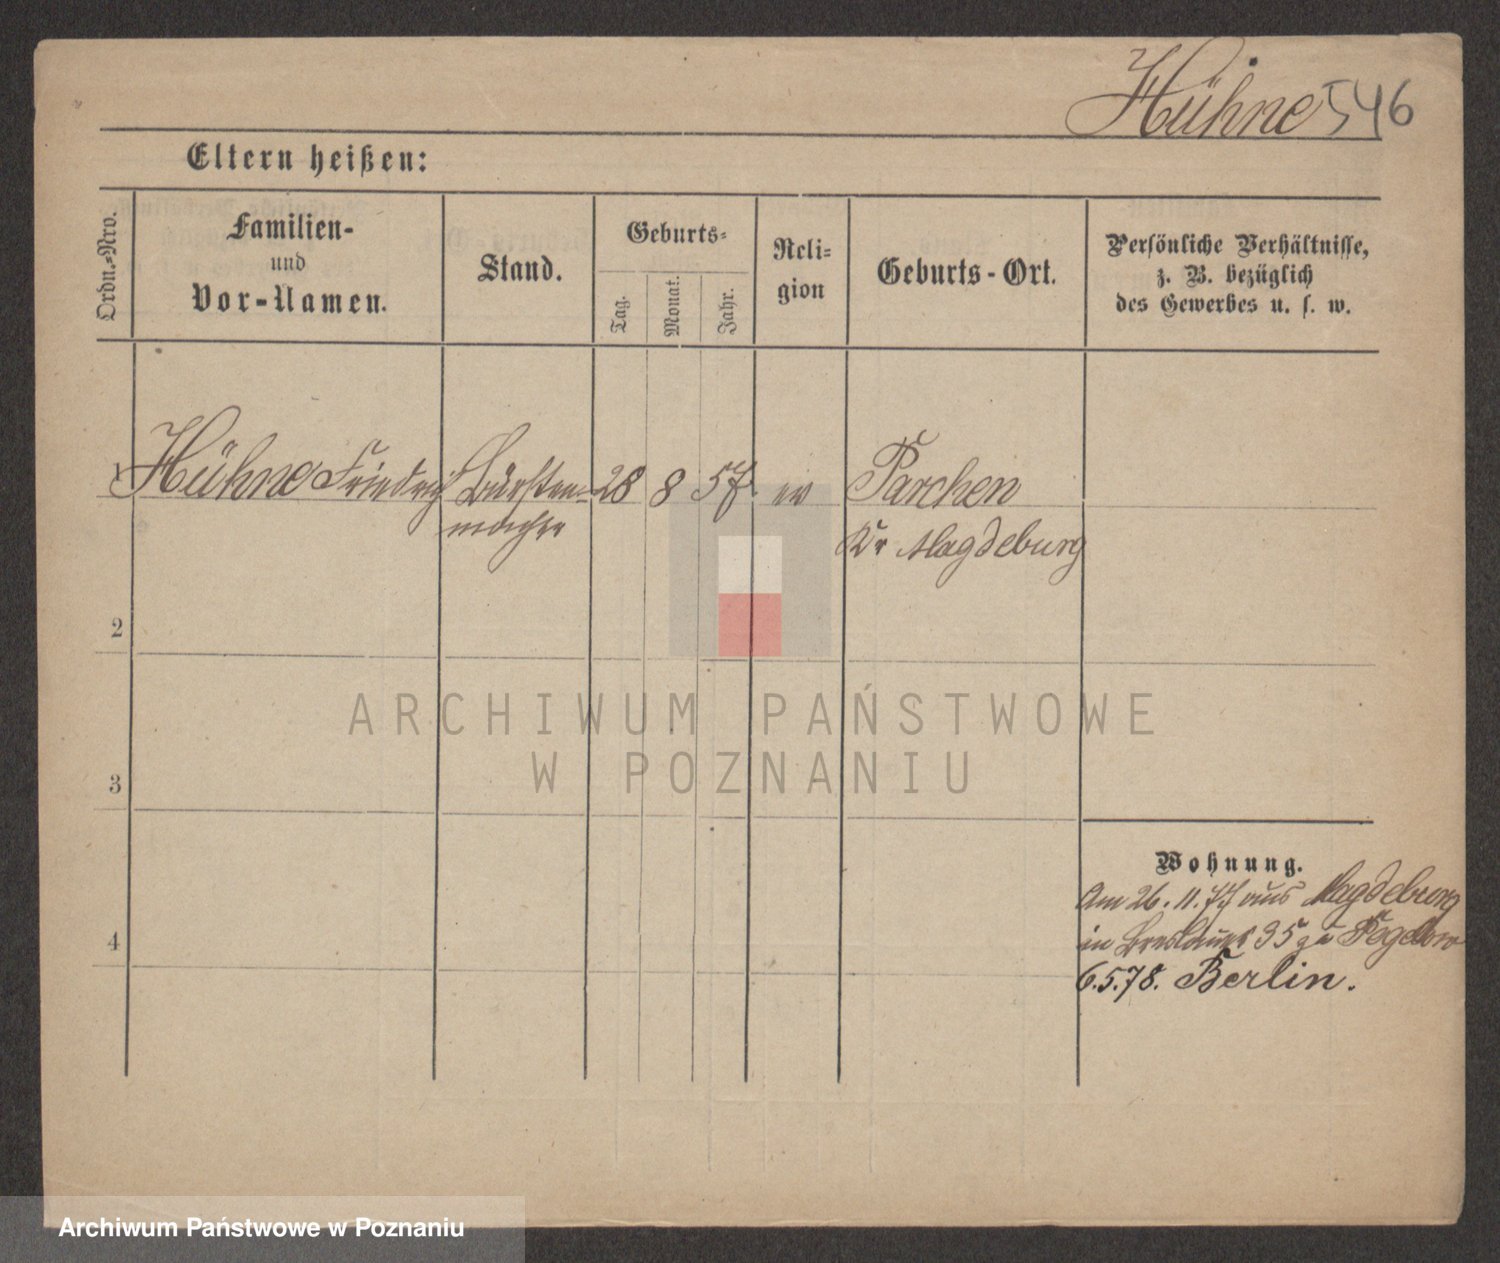 Hühne 546
Eltern heißen:
Ordn.-Nro.
Familien-
und
Vor-Namen.
Stand.
Geburts-
Tag.
Monat.
Jahr.
Reli-
gion
Geburts-Ort.
Persönliche Verhältnisse,
z. B. bezüglich
des Gewerbes u. s. w.
1 Hühne Friedrich Bürsten- 28 8 57 ev Parchen
macher Kr Magdeburg
2
3
4
ARCHIWUM PAŃSTWOWE
W POZNANIU
Wohnung.
Am 26.11.77 aus Magdeburg
in Breslauer 35 zu
6.5.78. Berlin.
Archiwum Państwowe w Poznaniu